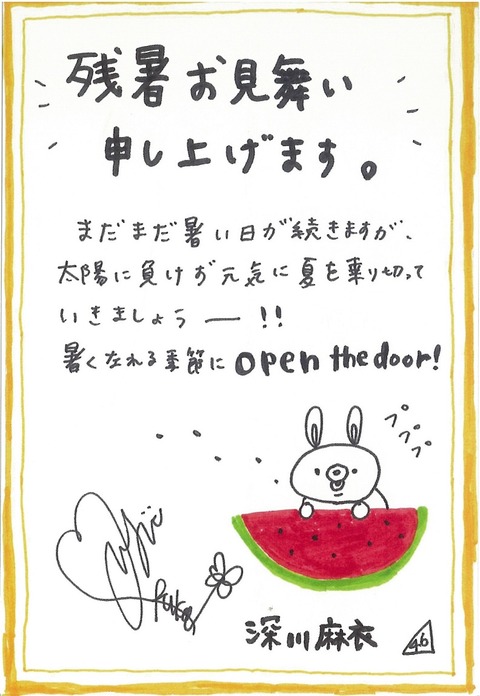 残暑お見舞い
申し上げます。
まだまだ暑い日が続きますが、
太陽に負けず元気に夏を乗り切って
いきましょうー!!
暑くなれる季節に open the door!
プププ
深川麻衣
46